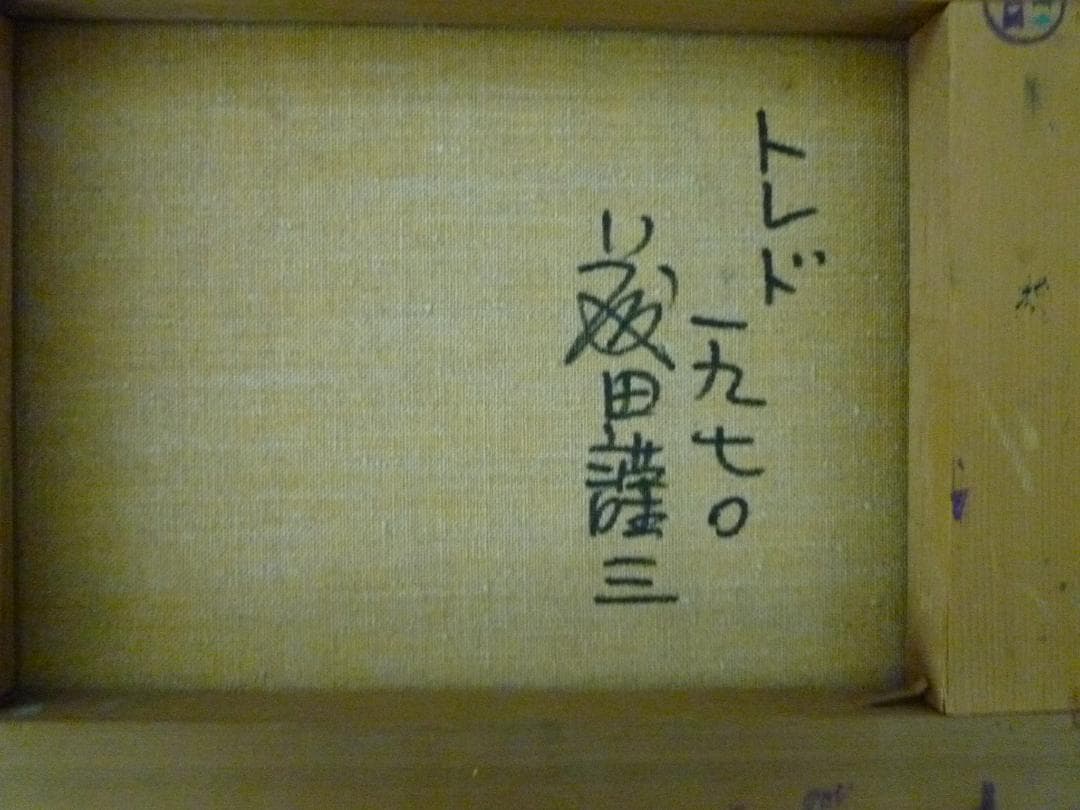 トレド
一九七〇
田謹三